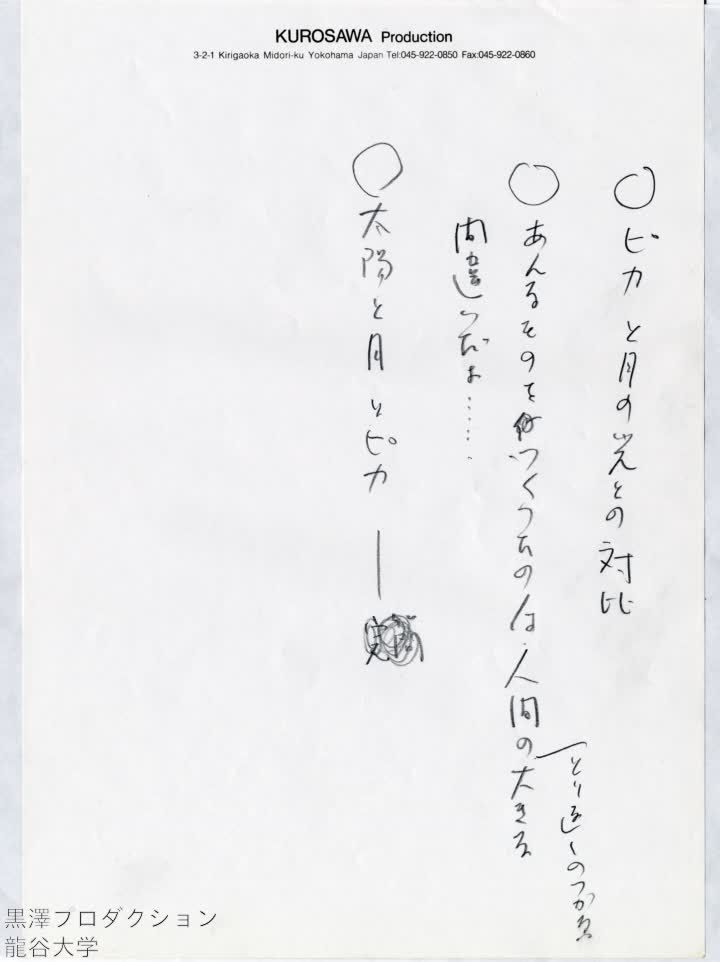 KUROSAWA Production
3-2-1 Kirigaoka Midori-ku Yokohama Japan Tel:045-922-0850 Fax:045-922-0860
○ ピカと月の光との対比
○ あんなものをつくつたのは、人間の大きな
とり返しのつかない
間違いだよ……
○ 太陽と月とピカ —
黒澤プロダクション
龍谷大学